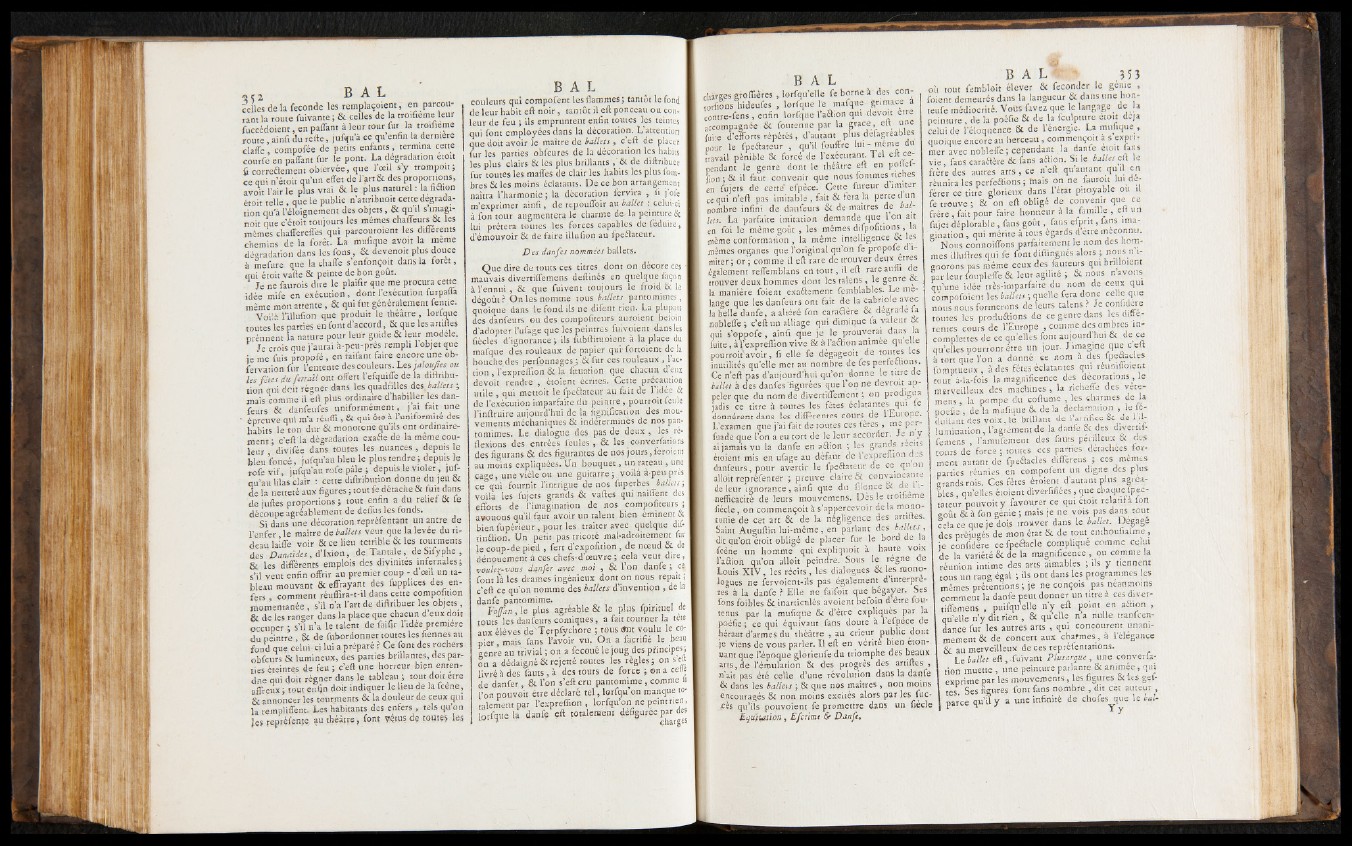 352
B A L
celles de la seconde les remplaçoient, en parcou-
rant la route suivante; & celles de la troisième leur
succédoient, en passant à leur tour sur la troisième
route, ainsi du reste, jusqu'à ce qu'enfin la dernière
classe, composée de petits enfants, termina cette
course en passant sur le pont. La dégradation étoit
si correctement observée, que l'œil s'y trompoit;
ce qui n'étoit qu'un effet de l'art & des proportions,
avoit l'air le plus vrai & le plus naturel: la fiction
étoit telle, que le public n'attribuoit cette dégrada-
tion qu'à l'éloignement des objets, & qu'il s'imagi-
noit que c'étoit toujours les mêmes chasseurs & les
mêmes chasseresses qui parcouroient les différents
chemins de la forêt. La musique avoit la même
dégradation dans les sons, & devenoit plus douce
à mesure que la chasse s'enfonçoit dans la forêt,
qui étoit vaste & peinte de bon goût.
Je ne saurois dire le plaisir que me procura cette
idée mise en exécution, dont l'exécution surpassa
même mon attente, & qui fut généralement sentie.
Voilà l'illusion que produit le théâtre, lorsque
toutes les parties en sont d'accord, & que les artistes
prennent la nature pour leur guide & leur modèle.
Je crois que j'aurai à-peu-près rempli l'objet que
je me suis proposé, en faisant faire encore une ob-
servation sur l'entente des couleurs. Les jalousies ou
les fêtes du serrail ont offert l'esquisse de la distribu-
tion qui doit régner dans les quadrilles des ballets;
mais comme il est plus ordinaire d'habiller les dan-
seurs & danseuses uniformément, j'ai fait une
épreuve qui m'a réussi, & qui ôte à l'uniformité des
habits le ton dur & monotone qu'ils ont ordinaire-
ment; c'est la dégradation exacte de la même cou-
leur, divisée dans toutes les nuances, depuis le
bleu foncé, jusqu'au bleu le plus tendre; depuis le
rose vif, jusqu'au rose pâle; depuis le violet, jus-
qu'au lilas clair: cette distribution donne du jeu &
de la netteté aux figures; tout se détache & fuit dans
de justes proportions; tout enfin a du relief & se
découpe agréablement de dessus les fonds.
Si dans une décoration représentant un antre de
l'enfer, le maître de ballets veut que la levée du ri-
deau laisse voir & ce lieu terrible & les tourments
des Danaïdes, d'Ixion, de Tantale, de Sisyphe,
& les différents emplois des divinités infernales;
s'il veut enfin offrir au premier coup-d'œil un ta-
bleau mouvant & effrayant des supplices des en-
fers, comment réussira-t-il dans cette composition
momentanée, s'il n'a l'art de distribuer les objets,
& de les ranger dans la place que chacun d'eux doit
occuper; s'il n'a le talent de saisir l'idée première
du peintre, & de subordonner toutes les siennes au
fond que celui-ci lui a préparé? Ce sont des rochers
obscurs & lumineux, des parties brillantes, des par-
ties éteintes de feu; c'est une horreur bien enten-
due qui doit régner dans le tableau; tout doit être
affreux; tout enfin doit indiquer le lieu de la scène,
& annoncer les tourments & la douleur de ceux qui
la remplissent. Les habitants des enfers, tels qu'on
les représente au théâtre, sont vêtus de toutes les
B A L
couleurs qui composent les flammes; tantôt le fond
de leur habit est noir, tantôt il est ponceau ou cou-
leur de feu; ils empruntent enfin toutes les teintes
qui sont employées dans la décoration. L'attention
que doit avoir le maître de ballets, c'est de placer
sur les parties obscures de la décoration les habits
les plus clairs & les plus brillants, & de distribuer
sur toutes les masses de clair les habits les plus som-
bres & les moins éclatants. De ce bon arrangement
naîtra l'harmonie; la décoration servira, si j'ose
m'exprimer ainsi, de repoussoir au ballet: celui-ci
à son tour augmentera le charme de la peinture &
lui prêtera toutes les forces capables de séduire,
d'émouvoir & de faire illusion au spectateur.
Des danses nommées ballets.
Que dire de tous ces titres dont on décore ces
mauvais divertissemens destinés en quelque façon
à l'ennui, & que suivent toujours le froid & le
dégoût? On les nomme tous ballets pantomimes,
quoique dans le fond ils ne disent rien. La plupart
des danseurs ou des compositeurs auroient besoin
d'adopter l'usage que les peintres suivoient dans les
siècles d'ignorance; ils substituoient à la place du
masque des rouleaux de papier qui sortoient de la
bouche des personnages; & sur ces rouleaux, l'ac-
tion, l'expression & la situation que chacun d'eux
devoit rendre, étoient écrites. Cette précaution
utile, qui mettoit le spectateur au fait de l'idée &
de l'exécution imparfaite du peintre, pourroit seule
l'instruire aujourd'hui de la signification des mou-
vements méchaniques & indéterminés de nos pan-
tomimes. Le dialogue des pas de deux, les ré-
flexions des entrées seules, & les conversations
des figurans & des figurantes de nos jours, seroient
au moins expliquées. Un bouquet, un rateau, une
cage, une vièle ou une guitarre; voilà à-peu-près
ce qui fournit l'intrigue de nos superbes ballets;
voilà les sujets grands & vastes qui naissent des
efforts de l'imagination de nos compositeurs;
avouons qu'il faut avoir un talent bien éminent &
bien supérieur, pour les traiter avec quelque dis-
tinction. Un petit pas tricoté mal-adroitement sur
le coup-de-pied, sert d'exposition, de nœud & de
dénouement à ces chefs-d'œuvre; cela veut dire,
voulez-vous danser avec moi, & l'on danse; ce
sont là les drames ingénieux dont on nous repait;
c'est ce qu'on nomme des ballets d'invention, de la
danse pantomime.
Fossan, le plus agréable & le plus spirituel de
tous les danseurs comiques, a fait tourner la tête
aux élèves de Terpsychore; tous ont voulu le co-
pier, mais sans l'avoir vu. On a sacrifié le beau
genre au trivial; on a secoué le joug des principes;
on a dédaigné & rejetté toutes les règles; on s'est
livré à des sauts, à des tours de force; on a cessé
de danser, & l'on s'est cru pantomime, comme si
l'on pouvoit être déclaré tel, lorsqu'on manque to-
talement par l'expression, lorsqu'on ne peint rien,
lorsque la danse est totalement défigurée par des
charges
B A L
charges grossières, lorsqu'elle se borne à des con-
torsions hideuses, lorsque le masque grimace à
contre-sens, enfin lorsque l'action qui devoit être
accompagnée & soutenue par la grace, est une
suite d'efforts répétés, d'autant plus désagréables
pour le spectateur, qu'il souffre lui-même du
travail pénible & forcé de l'exécutant. Tel est ce-
pendant le genre dont le théâtre est en posses-
sion; & il faut convenir que nous sommes riches
en sujets de cette espèce. Cette fureur d'imiter
ce qui n'est pas imitable, fait & fera la perte d'un
nombre infini de danseurs & de maîtres de bal-
lets. La parfaite imitation demande que l'on ait
en soi le même goût, les mêmes dispositions, la
même conformation, la même intelligence & les
mêmes organes que l'original qu'on se propose d'i-
miter; or; comme il est rare de trouver deux êtres
également ressemblans en tout, il est rare aussi de
trouver deux hommes dont les talens, le genre &
la manière soient exactement semblables. Le mê-
lange que les danseurs ont fait de la cabriole avec
la belle danse, a altéré son caractère & dégradé sa
noblesse; c'est un alliage qui diminue sa valeur &
qui s'oppose, ainsi que je le prouverai dans la
suite, à l'expression vive & à l'action animée qu'elle
pourroit avoir, si elle se dégageoit de toutes les
inutilités qu'elle met au nombre de ses perfections.
Ce n'est pas d'aujourd'hui qu'on donne le titre de
ballet à des danses figurées que l'on ne devroit ap-
peler que du nom de divertissement; on prodigua
jadis ce titre à toutes les fêtes éclatantes qui se
donnèrent dans les différentes cours de l'Europe.
L'examen que j'ai fait de toutes ces fêtes, me per-
suade que l'on a eu tort de le leur accorder. Je n'y
ai jamais vu la danse en action; les grands récits
étoient mis en usage au défaut de l'expression des
danseurs, pour avertir le spectateur de ce qu'on
alloit représenter; preuve claire & convaincante
de leur ignorance, ainsi que du silence & de l'i-
nefficacité de leurs mouvemens. Dès le troisième
siècle, on commençoit à s'appercevoir de la mono-
tonie de cet art & de la négligence des artistes.
Saint Augustin lui-même, en parlant des ballets,
dit qu'on étoit obligé de placer sur le bord de la
scène un homme qui expliquoit à haute voix
l'action qu'on alloit peindre. Sous le règne de
Louis XIV, les récits, les dialogues & les mono-
logues ne servoient-ils pas également d'interprè-
tes à la danse? Elle ne faisoit que bégayer. Ses
sons foibles & inarticulés avoient besoin d'être sou-
tenus par la musique & d'être expliqués par la
poësie; ce qui équivaut sans doute à l'espèce de
héraut d'armes du théâtre, au crieur public dont
je viens de vous parler. Il est en vérité bien éton-
nant que l'époque glorieuse du triomphe des beaux
arts, de l'émulation & des progrès des artistes,
n'ait pas été celle d'une révolution dans la danse
& dans les ballets; & que nos maîtres, non moins
encouragés & non moins excités alors par les suc-
cès qu'ils pouvoient se promettre dans un siècle
Equitation, Escrime & Danse.
B A L
353
où tout sembloit élever & seconder le génie,
soient demeurés dans la langueur & dans une hon-
teuse médiocrité. Vous savez que le langage de la
peinture, de la poësie & de la sculpture étoit déja
celui de l'éloquence & de l'énergie. La musique,
quoique encore au berceau, commençoit à s'expri-
mer avec noblesse; cependant la danse étoit sans
vie, sans caractère & sans action. Si le ballet est le
frère des autres arts, ce n'est qu'autant qu'il en
réunira les perfections; mais on ne sauroit lui dé-
férer ce titre glorieux dans l'état pitoyable où il
se trouve; & on est obligé de convenir que ce
frère, fait pour faire honneur à la famille, est un
sujet déplorable, sans goût, sans esprit, sans ima-
gination, qui mérite à tous égards d'être méconnu.
Nous connoissons parfaitement le nom des hom-
mes illustres qui se sont distingués alors; nous n'i-
gnorons pas même ceux des sauteurs qui brilloient
par leur souplesse & leur agilité; & nous n'avons
qu'une idée très-imparfaite du nom de ceux qui
composoient les ballets; quelle sera donc celle que
nous nous formerons de leurs talens? Je considère
toutes les productions de ce genre dans les diffé-
rentes cours de l'Europe, comme des ombres in-
complettes de ce qu'elles sont aujourd'hui & de ce
qu'elles pourront être un jour. J'imagine que c'est
à tort que l'on a donné ce nom à des spectacles
somptueux, à des fêtes éclatantes qui réunissoient
tout à-la-fois la magnificence des décorations, le
merveilleux des machines, la richesse des vête-
mens, la pompe du costume, les charmes de la
poësie, de la musique & de la déclamation, le sé-
duisant des voix, le brillant de l'artifice & de l'il-
lumination, l'agrément de la danse & des divertis-
semens, l'amusement des sauts périlleux & des
tours de force; toutes ces parties détachées for-
ment autant de spectacles différens; ces mêmes
parties réunies en composent un digne des plus
grands rois. Ces fêtes étoient d'autant plus agréa-
bles, qu'elles étoient diversifiées, que chaque spec-
tateur pouvoit y savourer ce qui étoit relatif à son
goût & à son génie; mais je ne vois pas dans tout
cela ce que je dois trouver dans le ballet. Dégagé
des préjugés de mon état & de tout enthousiasme,
je considère ce spectacle compliqué comme celui
de la variété & de la magnificence, ou comme la
réunion intime des arts aimables; ils y tiennent
tous un rang égal; ils ont dans les programmes les
mêmes prétentions; je ne conçois pas néanmoins
comment la danse peut donner un titre à ces diver-
tissemens, puisqu'elle n'y est point en action,
qu'elle n'y dit rien, & qu'elle n'a nulle transcen-
dance sur les autres arts, qui concourent unani-
mement & de concert aux charmes, à l'élégance
& au merveilleux de ces représentations.
Le ballet est, suivant Plutarque, une conversa-
tion muette, une peinture parlante & animée, qui
exprime par les mouvements, les figures & les ges-
tes. Ses figures sont sans nombre, dit cet auteur,
parce qu'il y a une infinité de choses que le bal-
Y y